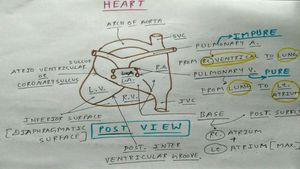 HEART
ARCH OF AORTA
SVC
IMPURE
PULMONARY A.
SULCUS
ATRIO VENTRICULAR
OR
CORONARY SULCUS
FROM Rt VENTRICAL TO LUNG
PULMONARY V. PURE
FROM LUNG TO Lt. ATRIUM
L.A.
R.A.
L.V.
R.V.
IVC
INFERIOR SURFACE
[DIAPHRAGMATIC
SURFACE]
POST VIEW
POST. INTER
VENTRICULAR GROOVE
BASE
POST. SURF
Rt. ATRIUM
+
Lt. ATRIUM [MAX.